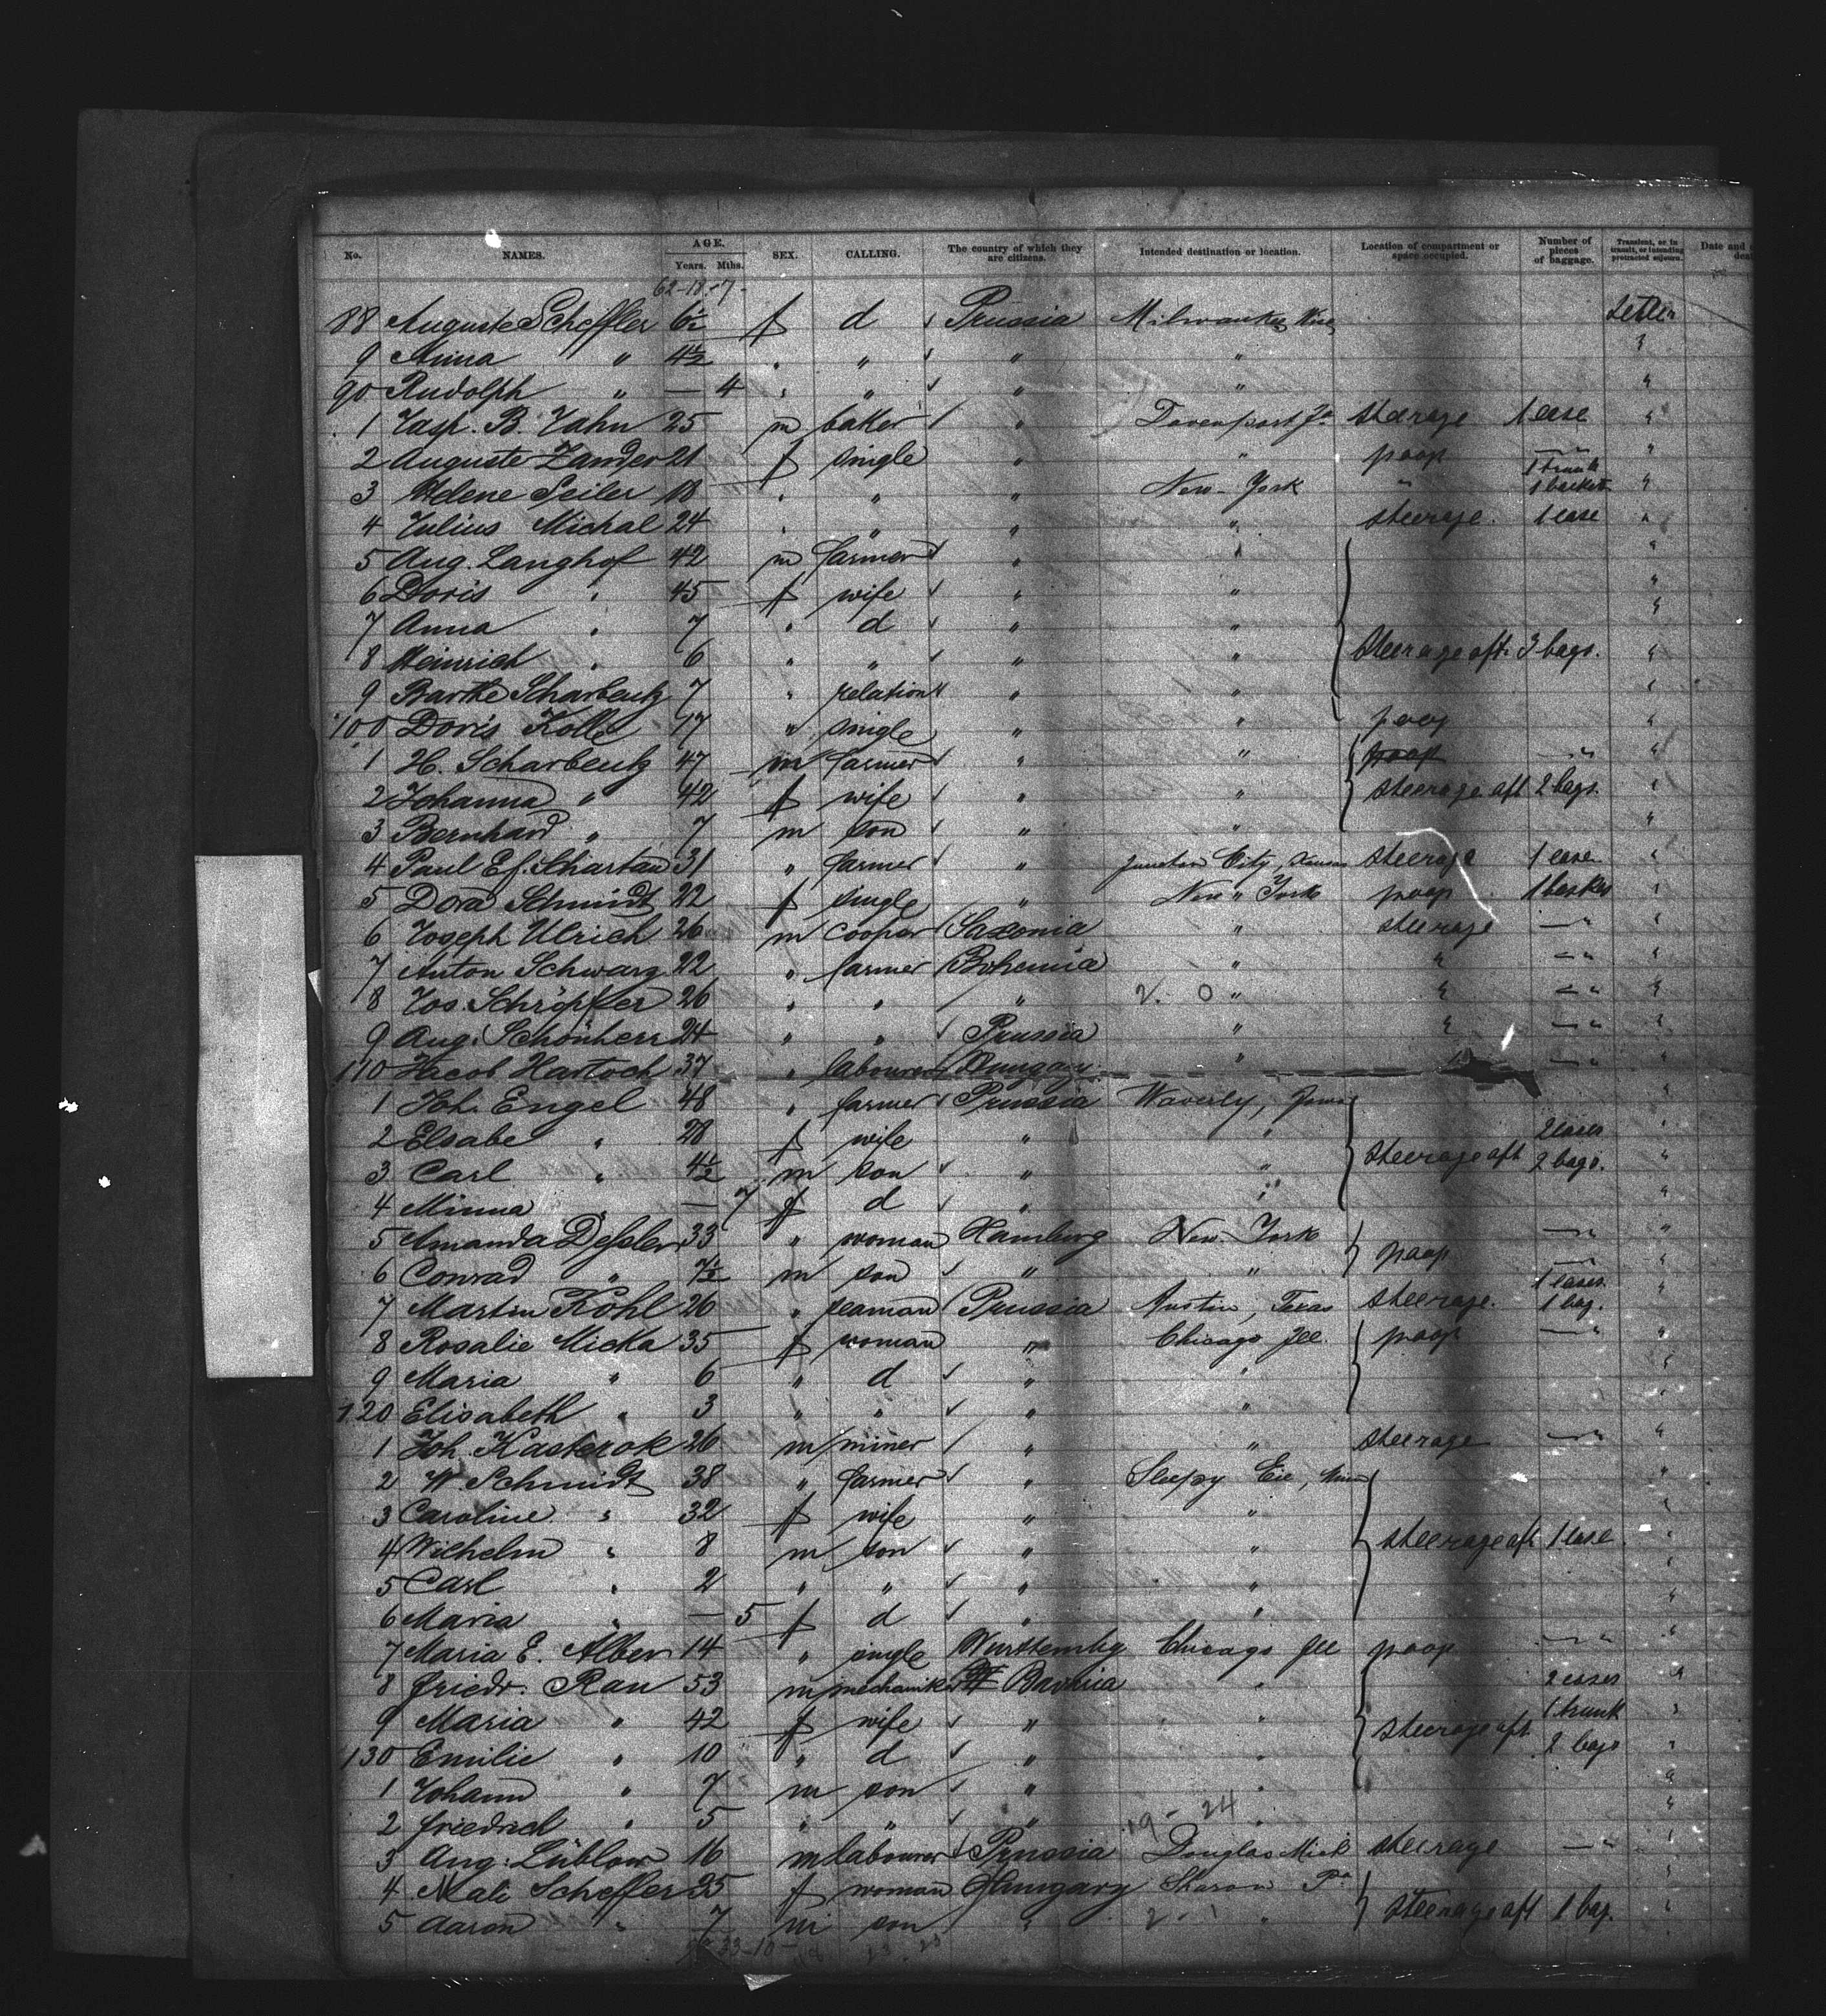 No. NAMES. AGE. Years. Mths. SEX. CALLING. The country of which they are citizens. Intended destination or location. Location of compartment or space occupied. Number of pieces of baggage. Transient, or in transit, or intending protracted sojourn. Date and
62-18-7-
88 Auguste Scheffler 6½ f d ✓ Prussia Milwaukee Wisc Settler
9 Anna " 4½ " " ✓ " " "
90 Rudolph " — 4 " " ✓ " " "
1 Jasp. B. Jahn 25 m baker / " Davenport Ja steerage 1 case "
2 Auguste Zander 21 f single " " poop — " "
3 Helene Seiler 18 " " " New-York " 1 trunk 1 basket "
4 Julius Michal 24 " " " " steerage. 1 case "
5 Aug. Langhof 42 m farmer ✓ " " "
6 Doris " 45 f wife ✓ " " "
7 Anna " 7 " d ✓ " " "
8 Heinrich " 6 " " ✓ " " steerage aft. 3 bags. "
9 Barthe Scharbeutz 7 " relation " " "
100 Doris Kolle 17 " single " " poop "
1 H. Scharbeutz 47 m farmer ✓ " " poop — " "
2 Johanna " 42 f wife ✓ " " steerage aft 2 bags. "
3 Bernhard " 7 m son ✓ " " "
4 Paul Ef. Schartau 31 " farmer ✓ " Junction City, Kansas steerage 1 case "
5 Dora Schmidt 22 f single " New York poop 1 basket "
6 Joseph Ulrich 26 m cooper / Saxonia " steerage — " "
7 Anton Schwarz 22 " farmer / Bohemia " " — " "
8 Jos. Schröpfer 26 " " / " 2. 0 " " — " "
9 Aug. Schönherr 24 " " ✓ Prussia " " — " "
110 Jacob Hartoch 37 " labourer / Hungary " — " "
1 Joh. Engel 48 " farmer ✓ Prussia Waverly, Jowa "
2 Elsabe " 28 f wife " " 2 cases "
3 Carl " 4½ m son ✓ " " steerage aft 2 bags. "
4 Minna " — 7 f d ✓ " " "
5 Amanda Deßler 33 " woman Hamburg New York — " "
6 Conrad " 7½ m son ✓ " " poop — " "
7 Martin Kohl 26 " seaman / Prussia Austin, Texas steerage. 1 cases 1 bag. "
8 Rosalie Micka 35 f woman " Chicago Jll. poop — " "
9 Maria " 6 " d ✓ " " "
120 Elisabeth " 3 " " ✓ " " "
1 Joh. Kasterok 26 m miner / " " steerage — " "
2 W. Schmidt 38 " farmer ✓ " Sleepy Eie, Minn "
3 Caroline " 32 f wife " " "
4 Wilhelm " 8 m son ✓ " " steerage aft 1 case "
5 Carl " 2 " " ✓ " " "
6 Maria " — 5 f d ✓ " " "
7 Maria E. Alber 14 " single Wurttembg Chicago Jll poop — " "
8 Friedr. Rau 53 m mechaniker Bavaria " 2 cases "
9 Maria " 42 f wife ✓ " " steerage aft 1 trunk "
130 Emilie " 10 " d ✓ " " 2 bags "
1 Johann " 7 m son ✓ " " "
2 Friedrich " 5 " " ✓ " 19-24 " "
3 Aug. Lüblow 16 m labourer ✓ Prussia Douglas Mich steerage — " "
4 Mali Scheffer 25 f woman Hungary Sharon Pa "
5 Aaron " 7 m son / " 2. 1 " steerage aft 1 bag. "
33-10-